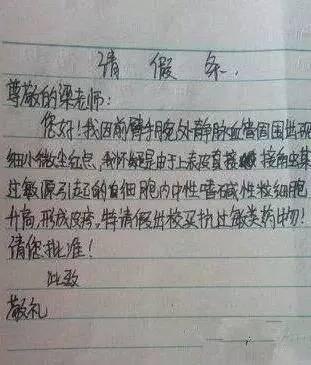 请 假 条.
尊敬的梁老师:
您好!我因前臂手腕外静脉血管周围出现
细小微尘红点,我怀疑是由于上表皮直接 接触虫某
过敏源引起的血细胞内中性嗜碱性粒细胞
升高,形成皮疹,特请假出校买抗过敏类药物!
请您批准!
此致
敬礼